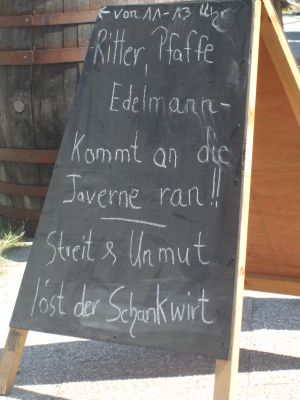 ← von 11-13 Uhr
-Ritter, Pfaffe
Edelmann-
Kommt an die
Taverne ran!!
Streit & Unmut
löst der Schankwirt